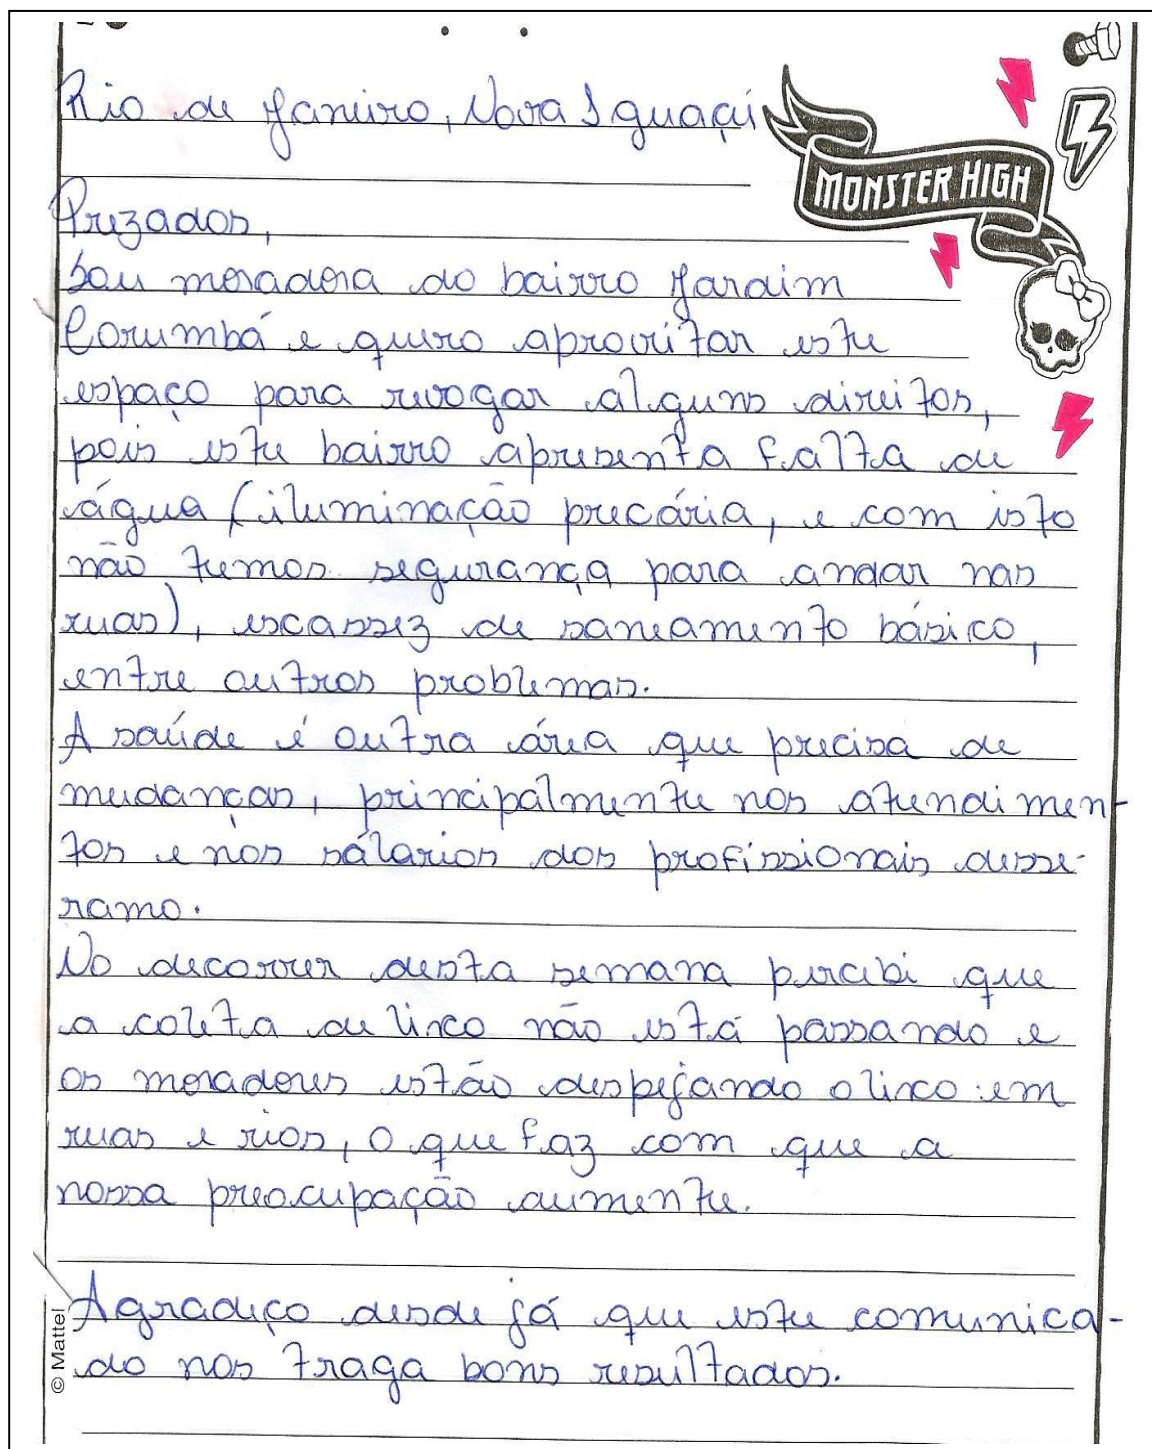 Rio de Janeiro, Nova Iguaçú
MONSTER HIGH
Prezados,
Sou moradora do bairro Jardim
Corumbá e quero aproveitar este
espaço para revogar alguns direitos,
pois este bairro apresenta falta de
água (iluminação precária, e com isto
não temos segurança para andar nas
ruas), escassez de saneamento básico,
entre outros problemas.
A saúde é outra área que precisa de
mudanças, principalmente nos atendimen-
tos e nos sálarios dos profissionais desse-
ramo.
No decorrer desta semana percebi que
a coleta de lixo não está passando e
os moradores estão despejando o lixo em
ruas e rios, o que faz com que a
nossa preocupação aumente.
Agradeço desde já que este comunica-
do nos traga bons resultados.
© Mattel